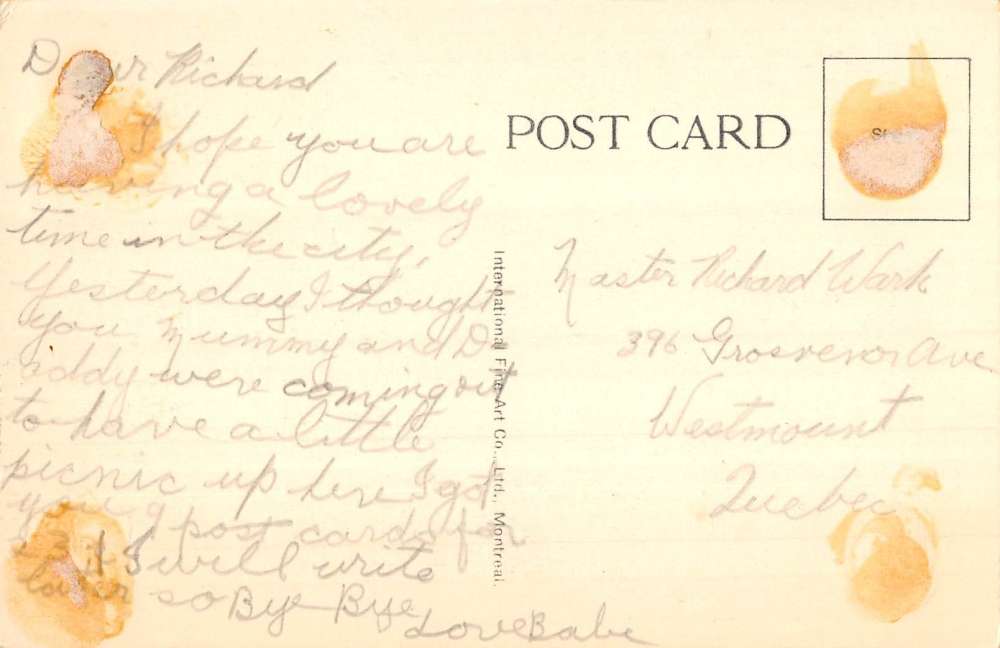 Dear Richard
I hope you are
having a lovely
time in the city,
Yesterday I thought
you Mummy and D
addy were coming out
to have a little
picnic up here I got
you 9 post cards for
I will write
later so Bye Bye
Love Babe
POST CARD
International Fine Art Co., Ltd., Montreal.
Master Richard Wark
396 Grosvenor Ave
Westmount
Quebec